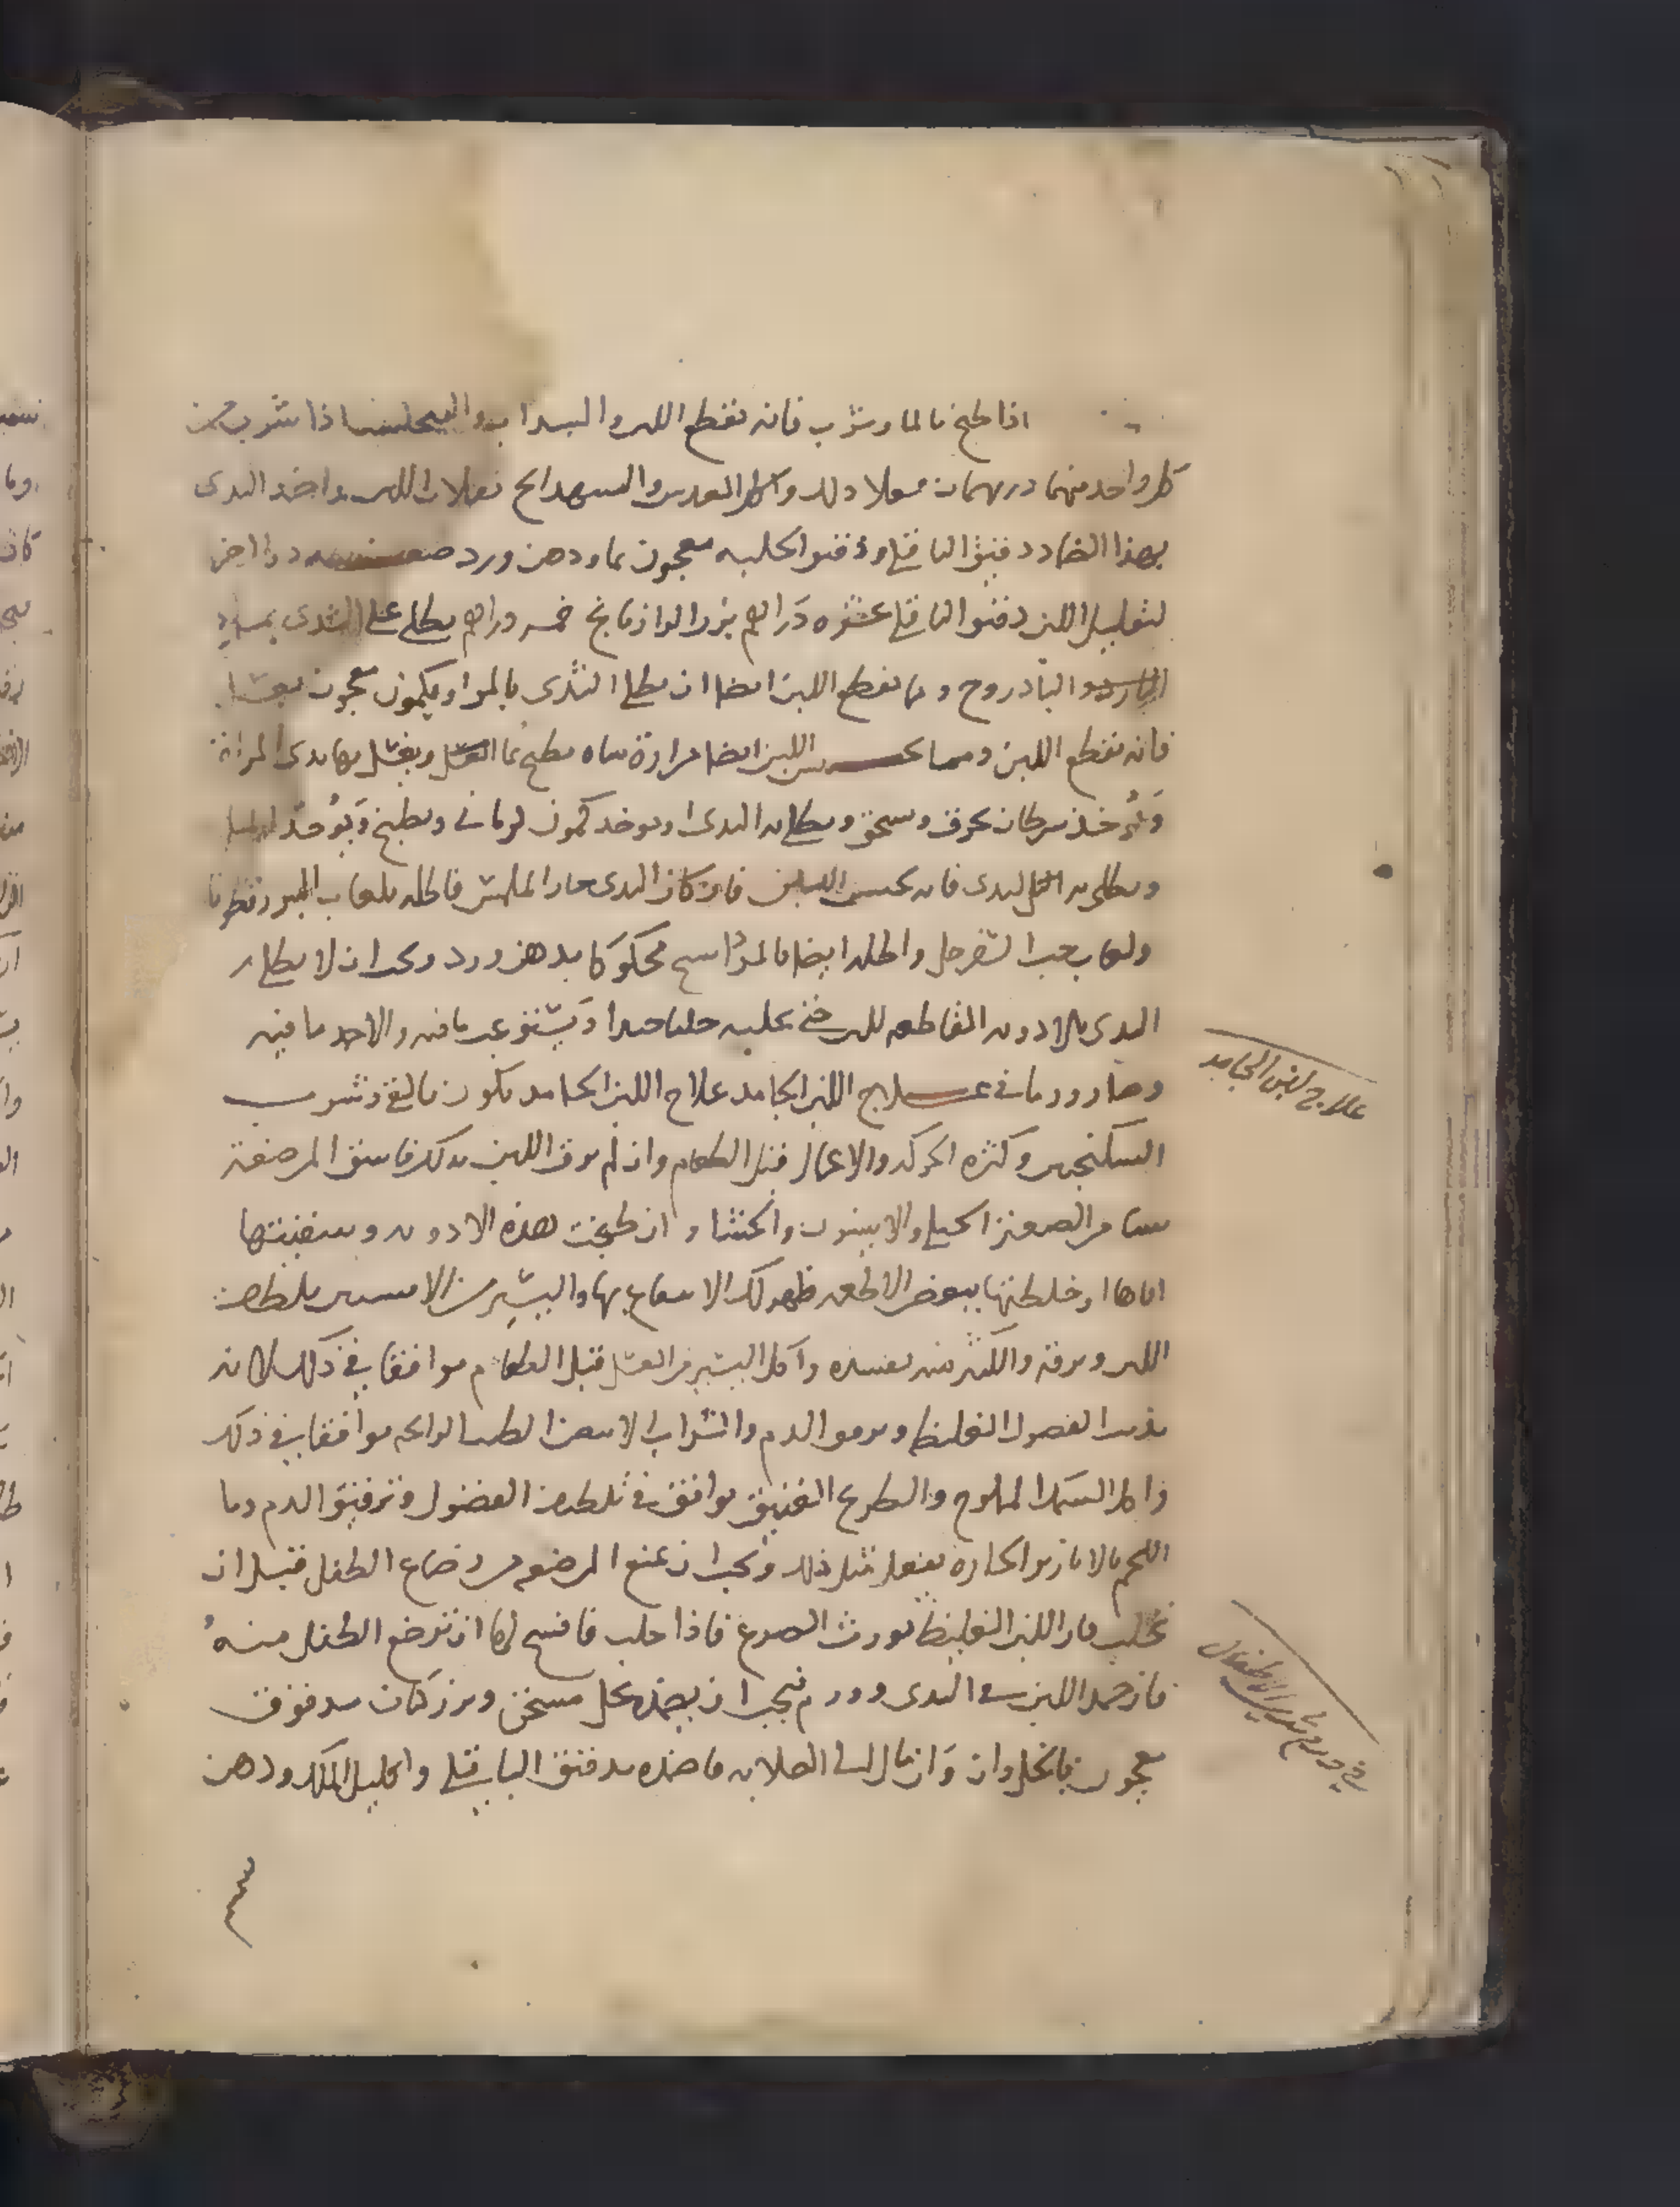 اذا طبخ بالما وشرب فانه يقطع اللبن والسداب اذا شرب من
كل واحد منهما درهمان فعلا ذلك واكل العدس والشهدانج يقللان اللبن واضمد الثدى
بهذا الضماد دقيق الباقلى ودقيق الحلبه معجون بماء ودهن ورد دوا اخر
لتقليل اللبن دقيق الباقلى عشره دراهم بزر الرازيانج خمسه دراهم يطلى على الثدى بماء
والبادروج ومما يقطع اللبن ايضا ان يطلى الثدى بالمر او بكمون معجون
فانه يقطع اللبن ومما يحبس اللبن ايضا مرارة شاه يطبخ بماء العسل ويغسل بها ثدى المراة
ويؤخذ سرطان يحرق ويسحق ويطلى به الثدى او يوخذ كمون كرمانى ويطبخ ويؤخذ
ويطلى به الثدى فانه يحبس اللبن فان كان الثدى حار الملمس فاطله بلعاب البزر قطونا
ولعاب حب السفرجل واطله ايضا بالمرداسنج محكوكا بدهن ورد ويجب ان لا يطلى
الثدى بالادويه القاطعه للبن حتى يحلب حلبا جيدا ويستفرغ ما فيه والا جمد ما فيه
وصار ورما فى علاج اللبن الجامد علاج اللبن الجامد يكون بالقئ وشرب
السكنجبين وكثره الحركه والاعمال قبل الطعام وان لم يرق اللبن بذلك فاسق المرضعة
من الصعتر الجبلى والانيسون والحاشا وان طبخت هذه الادويه وسقيتها
اياها او خلطتها ببعض الاطعمه ظهر لك الانتفاع بها واليسير من يلطف
اللبن ويرقه والكثير منه يفسده واكل اليسير من العسل قبل الطعام موافقا فى ذلك لانه
يذيب الفضول الغليظه ويرق الدم والشراب الابيض الطيب الرائحه موافقا فى ذلك
واكل السمك المملوح والطريخ العتيق موافق فى تلطيف الفضول وترقيق الدم وما
اللحم بالابازير الحاره يفعل مثل ذلك ويجب ان تمنع المرضعه من رضاع الطفل قبل ان
تحلب فان اللبن الغليظ يورث الصرع فاذا حلب فافسح لها ان ترضع الطفل منه
فان جمد اللبن فى الثدى وورم فيجب ان يضمد بخل مسخن وبزر كتان مدقوق
معجون بالخل وان مال الى الصلابه فاضمده بدقيق الباقلى واكليل الملك ودهن
علاج لبن الجامد
فى ورم ثدى الاطفال